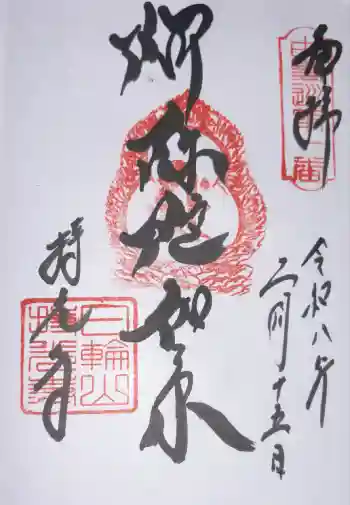 奉拝
阿弥陀如来
令和八年
二月十五日
持光寺
日輪山